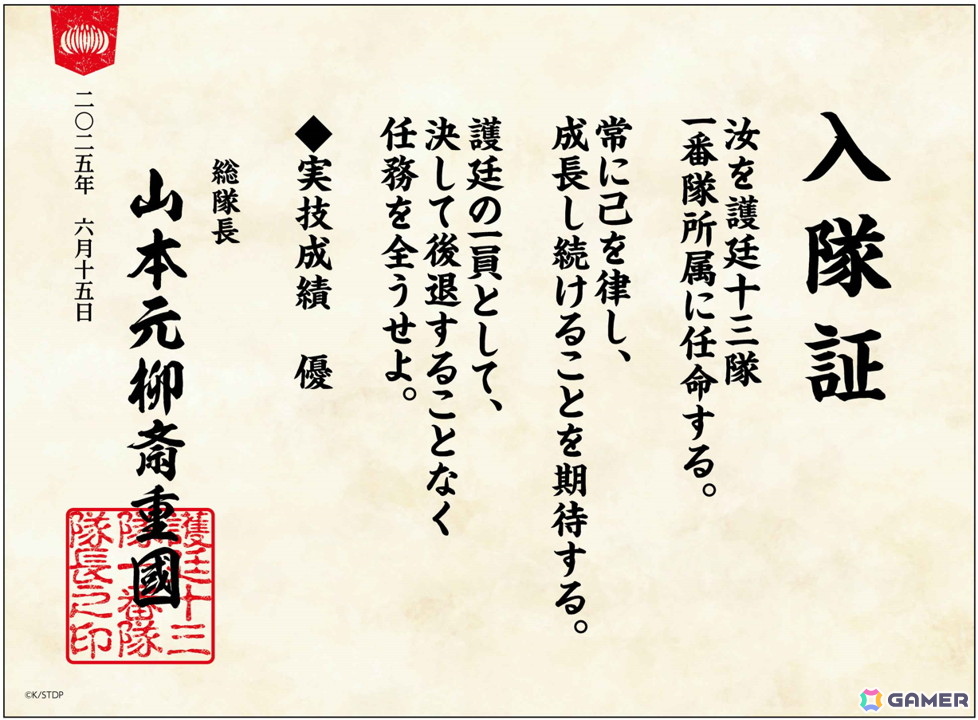 入隊証
汝を護廷十三隊
一番隊所属に任命する。
常に己を律し、
成長し続けることを期待する。
護廷の一員として、
決して後退することなく
任務を全うせよ。
◆実技成績　優
総隊長
山本元柳斎重國
護廷十三
隊一番隊
隊長之印
二〇二五年　六月十五日
©K/STDP
GAMER